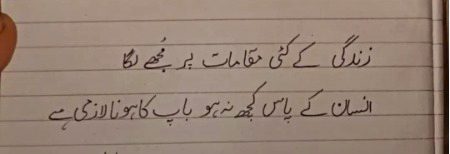 زندگی کے کئی مقامات پر مُجھے لگا
انسان کے پاس کچھ نہ ہو باپ کا ہونا لازمی ہے